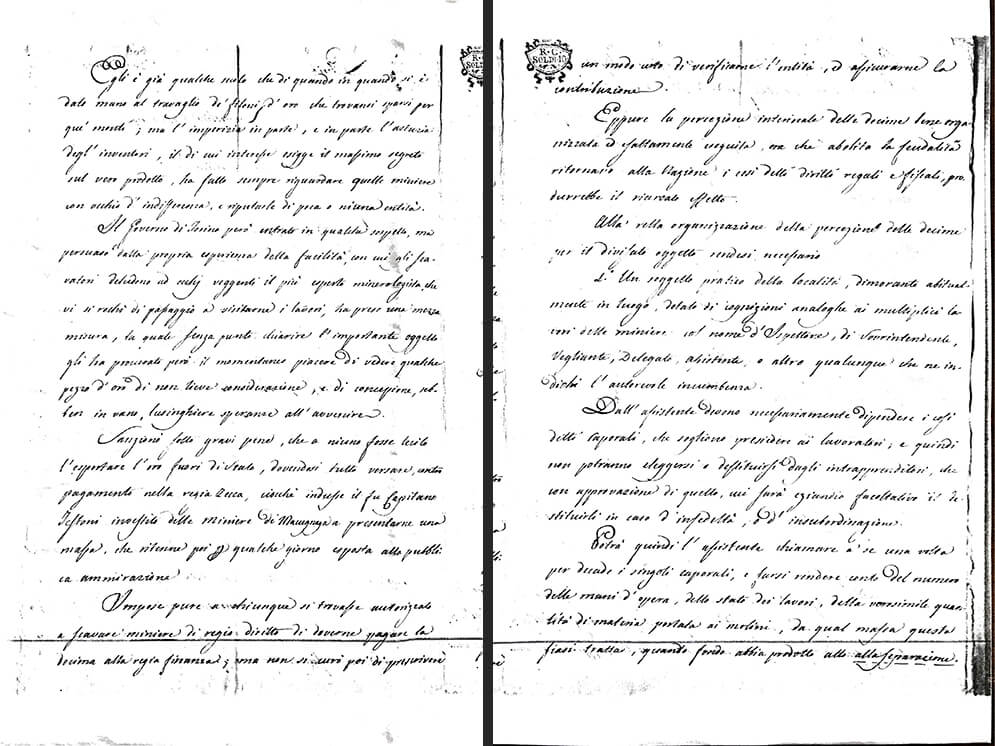 Egli è già qualche secolo che di quando in quando si è
dato mano al travaglio de' filoni d'oro che trovansi sparsi per
que' monti; ma l'imperizia in parte, e in parte l'astuzia
degl'inventori, il di cui interesse esigge il massimo segreto
sul vero prodotto, ha fatto sempre riguardare quelle miniere
con occhio d'indifferenza, e riputarle di poca o niuna entità.
Il Governo di Torino però entrato in qualche sospetto, ma
persuaso dalla propria esperienza della facilità, con cui gli sca-
vatori deludono ad occhj veggenti il più esperto minerologista, che
vi si rechi di passaggio a visitarne i lavori, ha preso una mezza
misura, la quale senza punto chiarire l'importante oggetto
gli ha procurato però il momentaneo piacere di vedere qualche
pezzo d'oro di non lieve considerazione, e di concepirne, seb-
ben in vano, lusinghiere speranze all'avvenire.
Sanzionò sotto gravi pene, che a niuno fosse lecito
l'esportare l'oro fuori di Stato, dovendosi tutto versare, contro
pagamento nella regia Zecca, ciocchè indusse il fu Capitano
Testoni investito delle miniere di Macugnaga a presentarne una
massa, che ritenne poi p qualche giorno esposta alla pubbli
ca ammirazione
Impose pure a chiunque si trovasse autorizzato
a scavare miniere di regio diritto di doverne pagare la
decima alla regia finanza; ma non si curò poi di prescrivere
R. C.
SOLDI 10
R. C.
SOLDI 10
un modo certo di verificarne l'entità, ed assicurarne la
contribuzione.
Eppure la percezione intrinsecale delle decime bene orga-
nizzata ed esattamente eseguita, ora che abolita la feudalità
ritornano alla Nazione i così detti diritti regali e fiscali, pro-
durrebbe il ricercato effetto.
Alla retta organizzazione della percezione delle decime
per il divisato oggetto rendesi necessario
1.° Un soggetto pratico della località, dimorante abitual-
mente in luogo, dotato di cognizioni analoghe ai multiplici la
vori delle miniere col nome d'Ispettore, di Sovrintendente,
Vegliante, Delegato, assistente, o altro qualunque che ne in-
dichi l'autorevole incumbenza.
Dall'assistente devono necessariamente dipendere i così
detti caporali, che sogliono presiedere ai lavoratori; e quindi
non potranno eleggersi o destituirsi dagli intrapprenditori, che
con approvazione di quello, cui sarà eziandio facoltativo il de-
stituirli in caso d'infedeltà, o d'insubordinazione.
Potrà quindi l'assistente chiamare a se una volta
per decade i singoli caporali, e farsi rendere conto del numero
delle mani d'opera, dello stato dei lavori, della verosimile quan-
tità di materia portata ai molini, da qual massa questa
siasi tratta, quanto fondo abbia prodotto alla separazione.